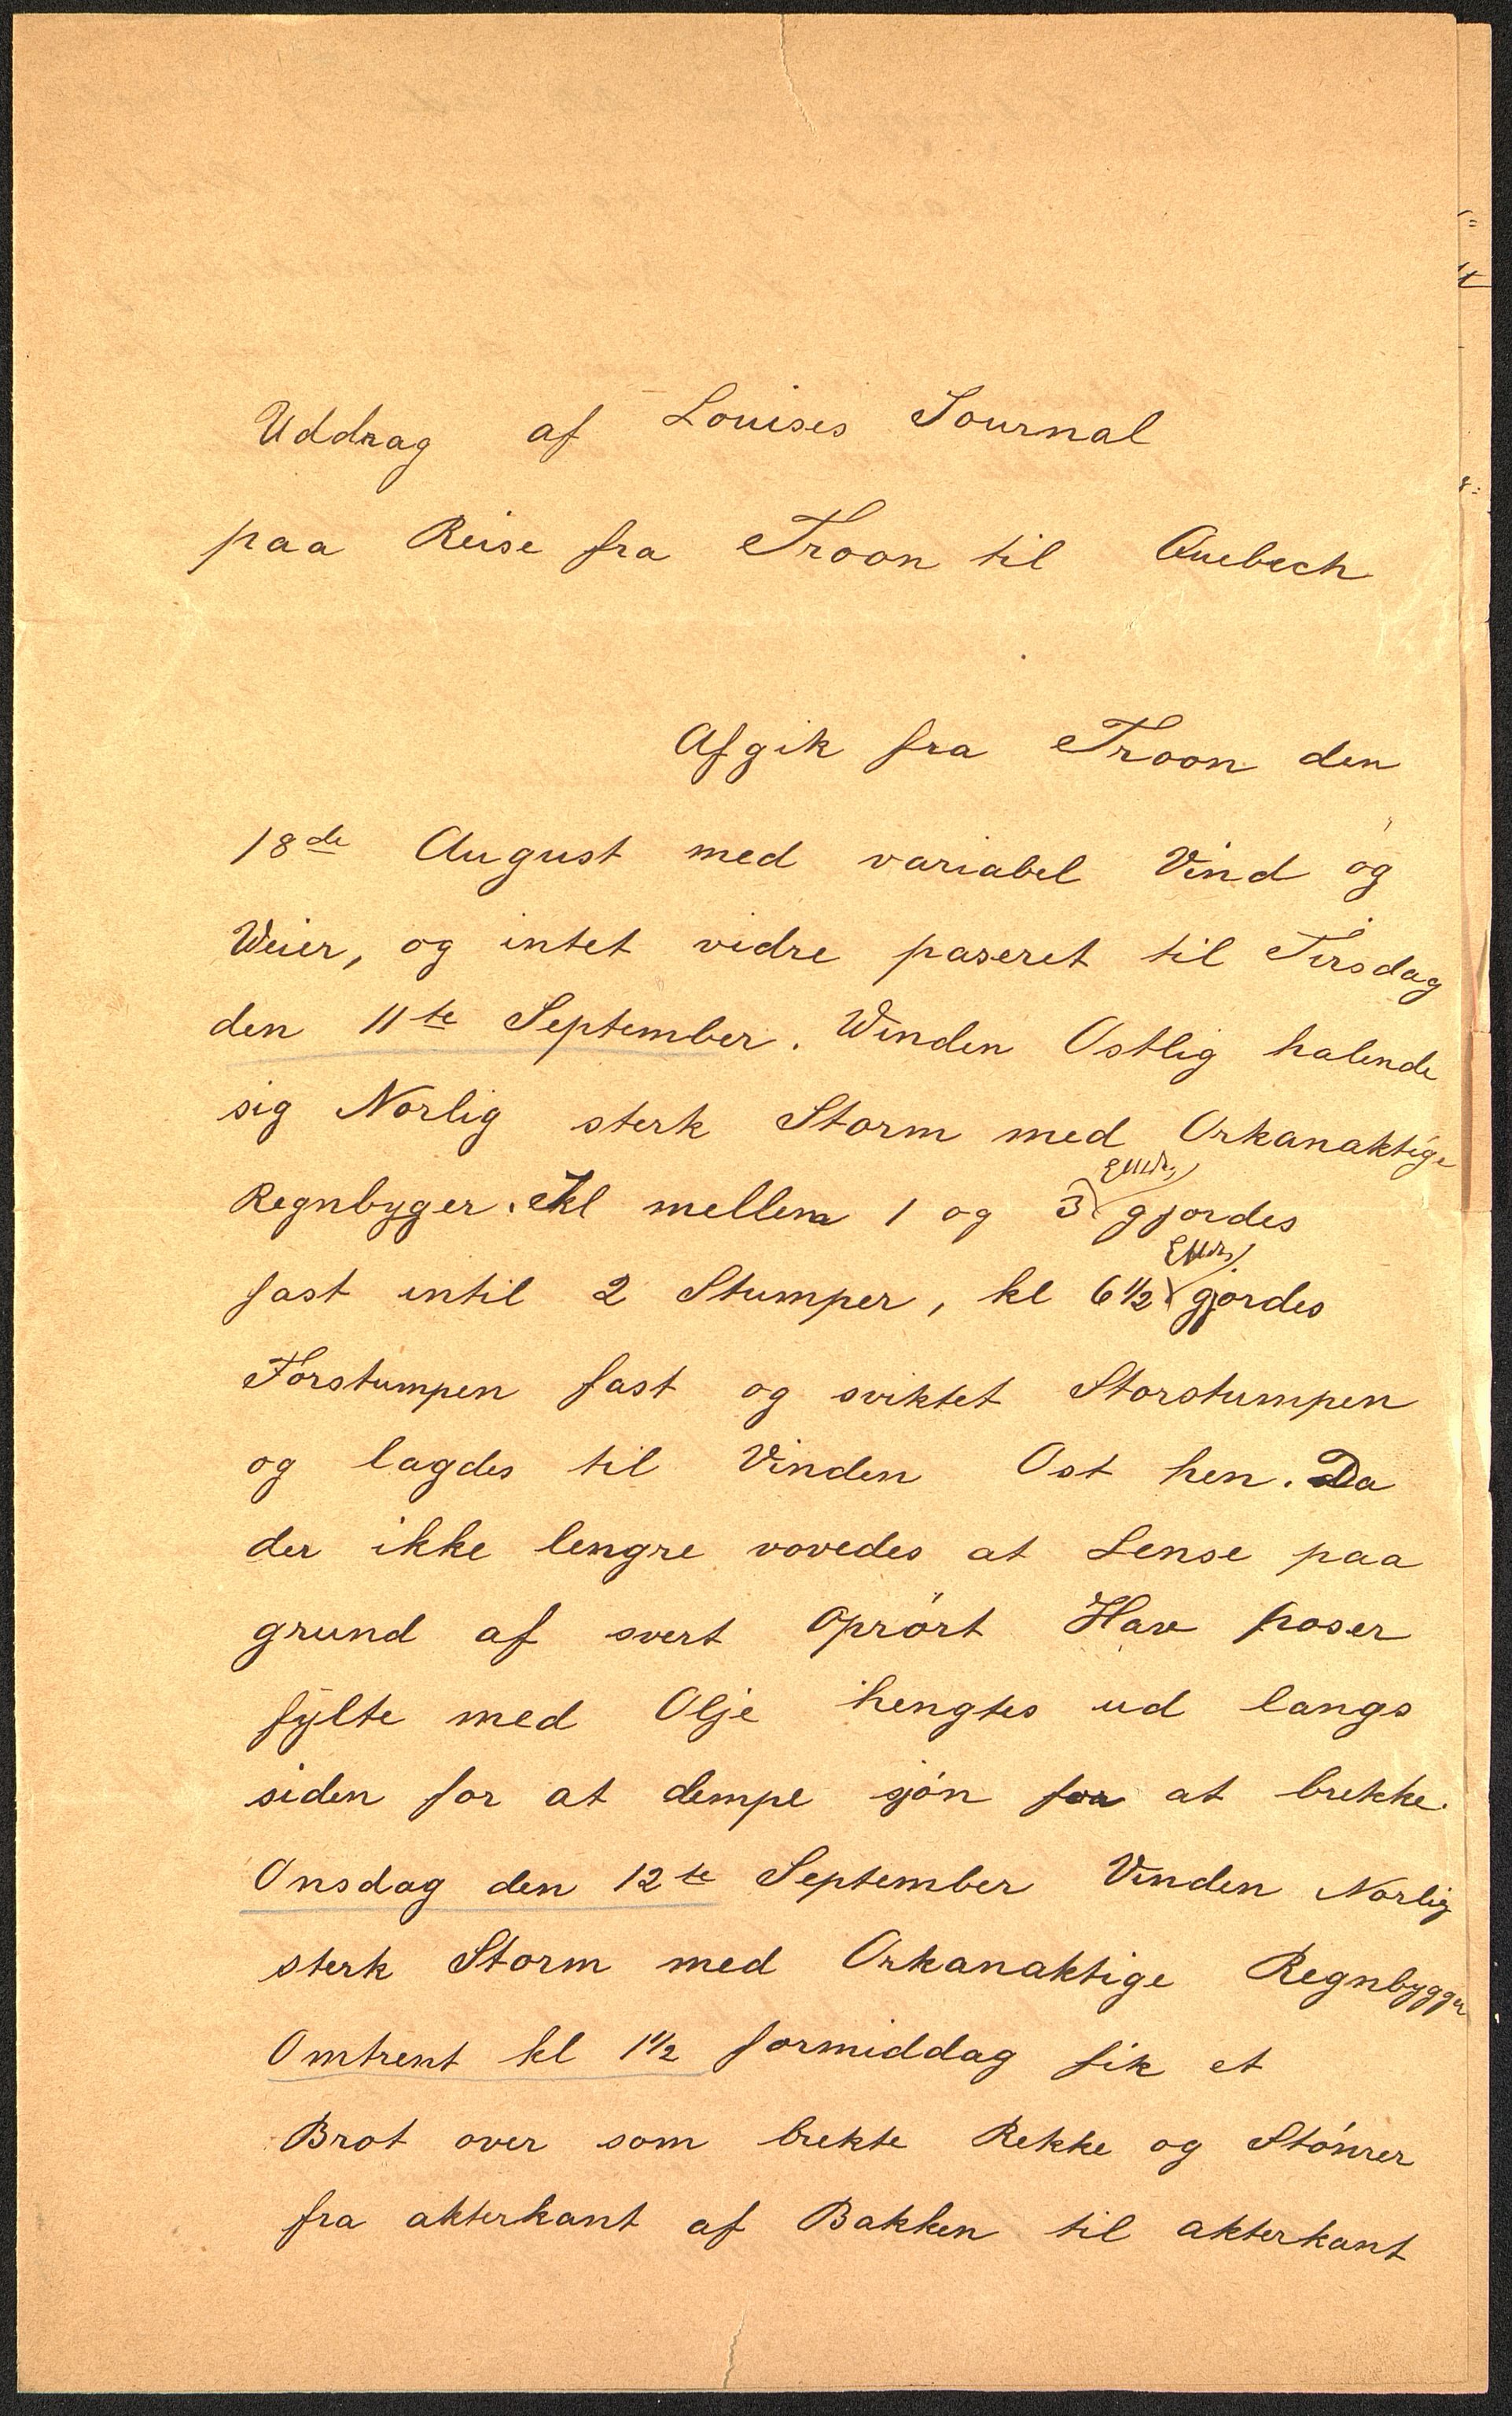 Uddrag af Louises Journal
paa Reise fra Troon til Quebech
Afgik fra Troon den
18de August med variabel Vind og
Weier, og intet vidre paseret til Tirsdag
den 11te September. Winden Ostlig halende
sig Norlig sterk Storm med Orkanaktige
Regnbyger. Kl mellem 1 og 3 gjordes
fast intil 2 Stumper, kl 6 1/2 gjordes
Forstumpen fast og sviktet Storstumpen
og lagdes til Vinden Ost hen. Da
der ikke lengre vovedes at Lense paa
grund af svert Oprört Hav poser
fylte med Olje hengtes ud langs
siden for at dempe sjön for at brekke.
Onsdag den 12te September Vinden Norlig
sterk Storm med Orkanaktige Regnbygger
Omtrent kl 1 1/2 formiddag fik et
Brot over som brekte Rekke og Stönrer
fra akterkant af Bakken til akterkant